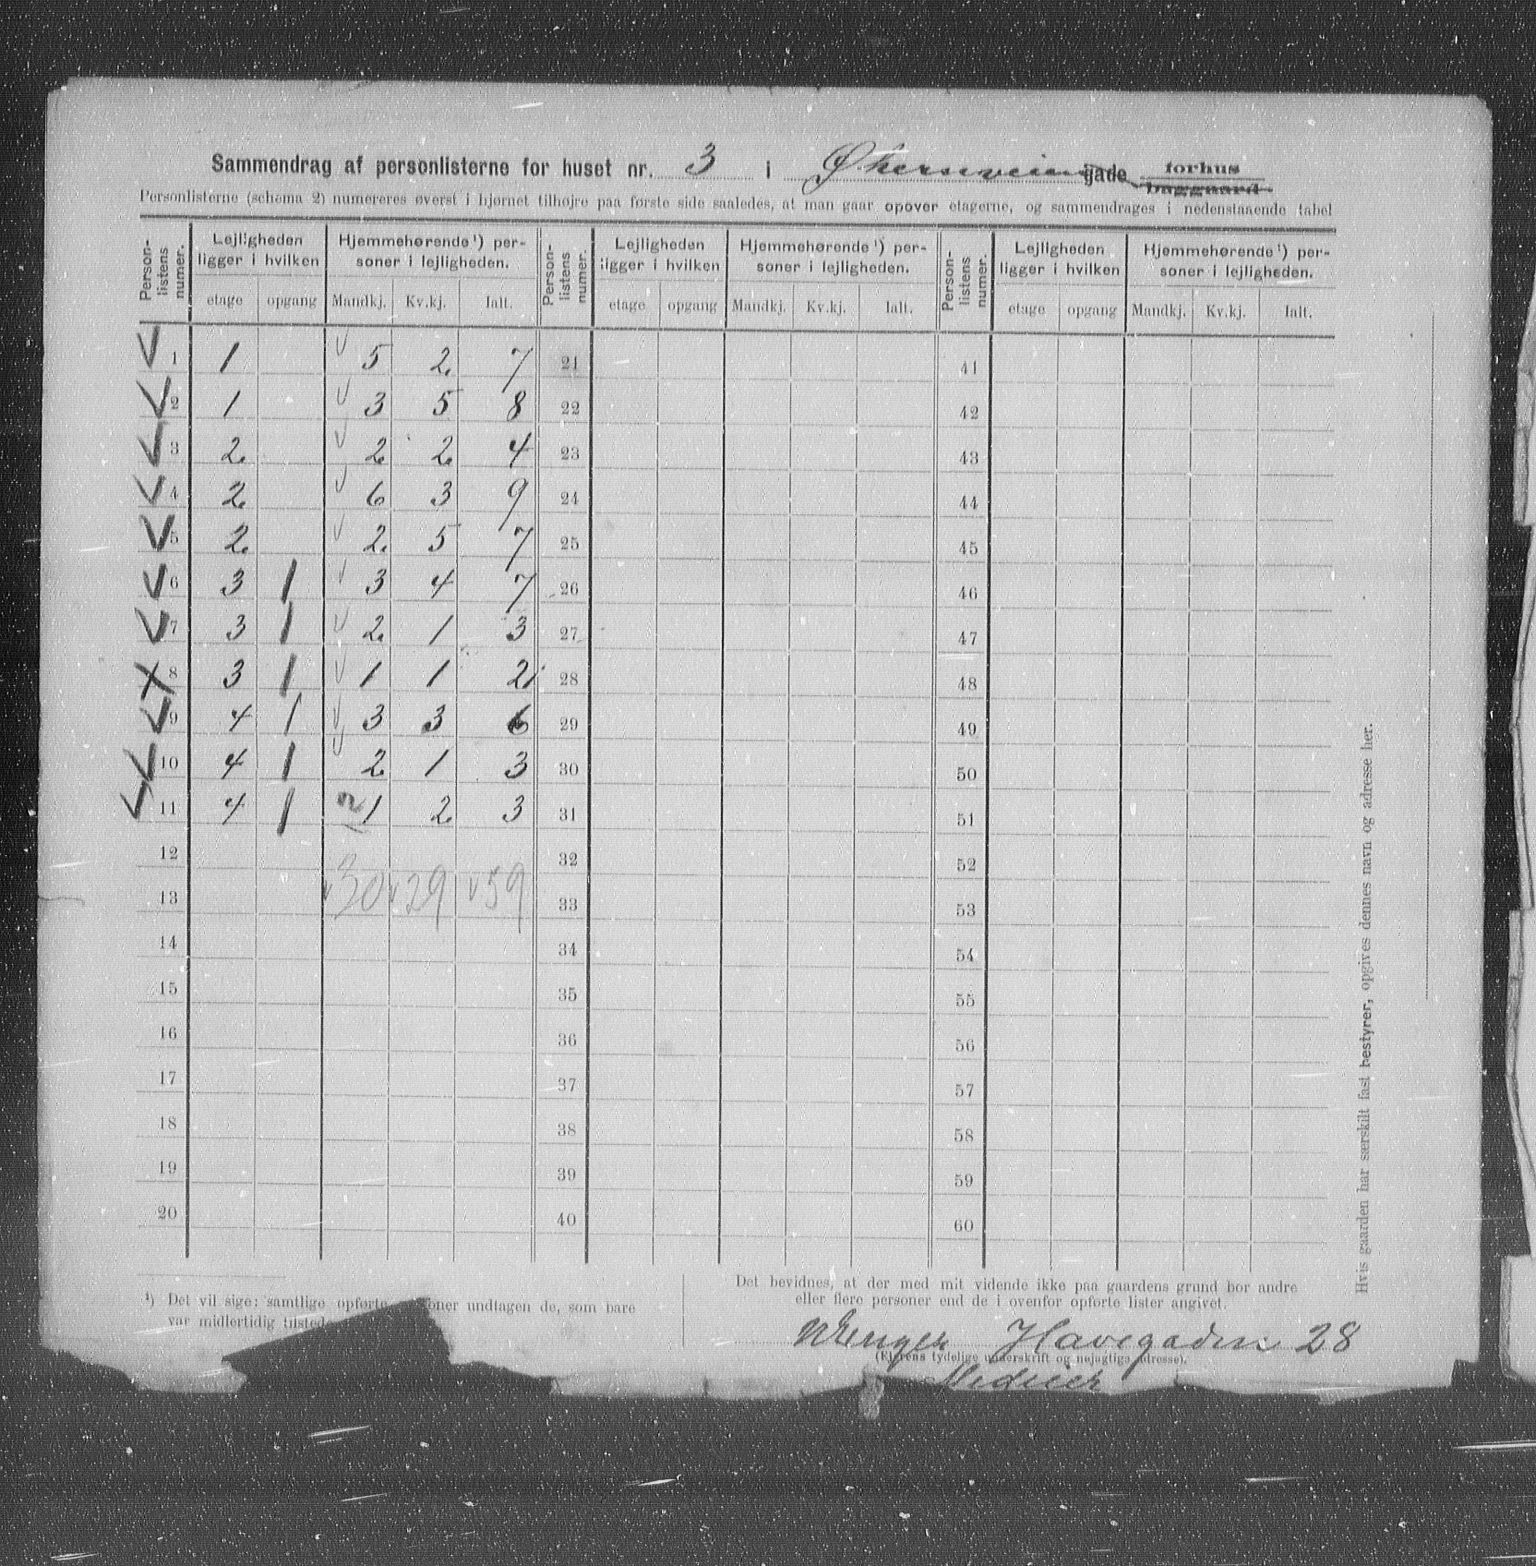 Sammendrag af personlisterne for huset nr. 3 i Økernveien gade forhus baggaard
Personlisterne (schema 2) numereres øverst i hjørnet tilhøjre paa første side saaledes, at man gaar opover etagerne, og sammendrages i nedenstaaende tabel
Person-listens numer. Lejligheden ligger i hvilken Hjemmehørende ¹) personer i lejligheden. Person-listens numer. Lejligheden ligger i hvilken Hjemmehørende ¹) personer i lejligheden. Person-listens numer. Lejligheden ligger i hvilken Hjemmehørende ¹) personer i lejligheden.
etage opgang Mandkj. Kv.kj. Ialt. etage opgang Mandkj. Kv.kj. Ialt. etage opgang Mandkj. Kv.kj. Ialt.
1 1 5 2 7 21 41
2 1 3 5 8 22 42
3 2 2 2 4 23 43
4 2 6 3 9 24 44
5 2 2 5 7 25 45
6 3 1 3 4 7 26 46
7 3 1 2 1 3 27 47
8 3 1 1 1 2 28 48
9 4 1 3 3 6 29 49
10 4 1 2 1 3 30 50
11 4 1 1 2 3 31 51
12 32 52
13 30 29 59 33 53
14 34 54
15 35 55
16 36 56
17 37 57
18 38 58
19 39 59
20 40 60
Hvis gaarden har særskilt fast bestyrer, opgives dennes navn og adresse her.
¹) Det vil sige: samtlige opførte undtagen de, som bare
var midlertidig
Det bevidnes, at der med mit vidende ikke paa gaardens grund bor andre
eller flere personer end de i ovenfor opførte lister angivet.
Havegaden 28
(Ejerens tydelige underskrift og nøjagtige adresse).